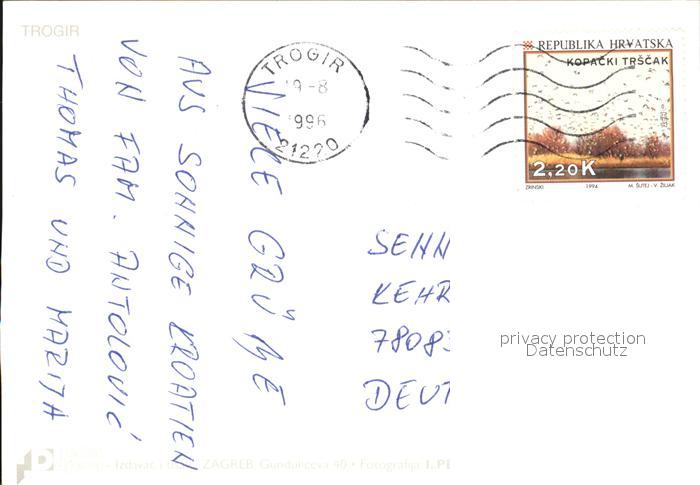 TROGIR
TROGIR
9-8
1996
21220
REPUBLIKA HRVATSKA
KOPAČKI TRŠČAK
2,20 K
ZRINSKI 1994 M. ŠUTEJ - V. ŽILJAK
VIELE GRÜßE
AUS SONNIGE KROATIEN
VON FAM. ANTOLOVIĆ
THOMAS UND MARIJA
SEHN
KEHR
7808
DEUT
privacy protection
Datenschutz
Izdavač i ZAGREB, Gundulićeva 40 • Fotografija